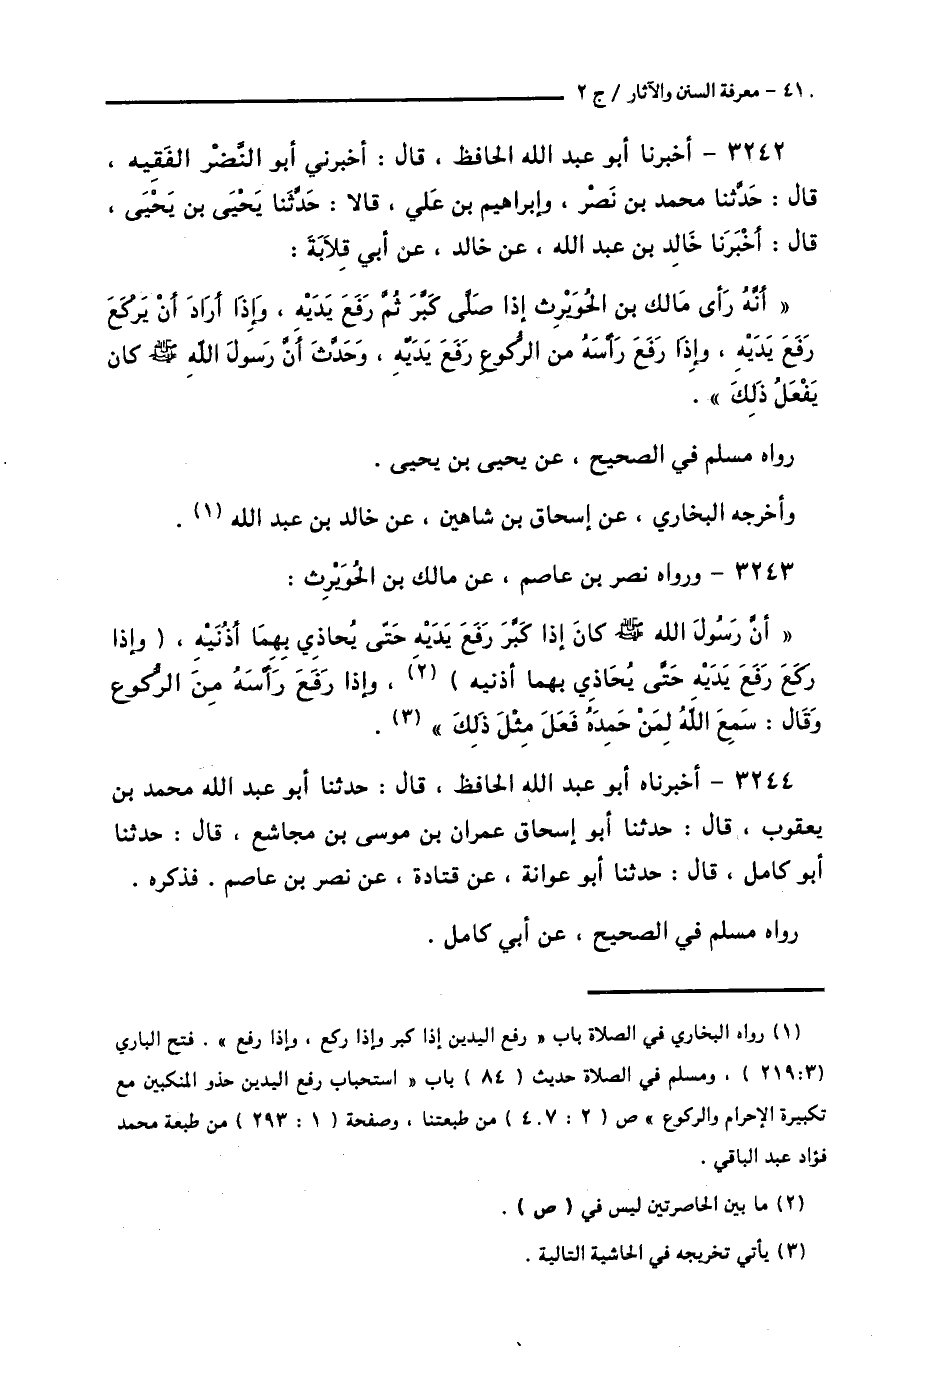 ٤١٠ - معرفة السنن والآثار / ج ٢
٣٢٤٢ - أخبرنا أبو عبد الله الحافظ ، قال : أخبرني أبو النَّضْر الفَقِيه ،
قال : حَدَّثنا محمد بن نَصْر ، وإبراهيم بن عَلي ، قالا : حَدَّثَنا يَحْيَى بن يَحْيَى ،
قال : أخْبَرَنا خَالِد بن عبد الله ، عن خالد ، عن أبي قِلاَبَةَ :
« أنَّهُ رَأى مَالك بن الحُوَيْرِث إذا صَلَّى كَبَّرَ ثُمَّ رَفَعَ يَدَيْهِ ، وَإِذَا أرَادَ أنْ يَرْكَعَ
رَفَعَ يَدَيْهِ ، وإِذَا رَفَعَ رَأسَهُ من الرُّكُوعِ رَفَعَ يَدَيْهِ ، وَحَدَّثَ أنَّ رَسولَ اللهِ ﷺ كان
يَفْعَلُ ذَلِكَ » .
رواه مسلم في الصحيح ، عن يحيى بن يحيى .
وأخرجه البخاري ، عن إسحاق بن شاهين ، عن خالد بن عبد الله (١) .
٣٢٤٣ - ورواه نصر بن عاصم ، عن مالك بن الحُوَيْرِث :
« أنَّ رَسُولَ الله ﷺ كانَ إذا كَبَّرَ رَفَعَ يَدَيْهِ حَتَّى يُحاذِي بِهِمَا أذُنَيْهِ ، ( وإذا
رَكَعَ رَفَعَ يَدَيْهِ حَتَّى يُحَاذِي بهما أذنيه ) (٢) ، وإذا رَفَعَ رَأْسَهُ مِنَ الرُّكُوعِ
وَقَال : سَمِعَ اللَّهُ لِمَنْ حَمِدَهُ فَعَلَ مِثْلَ ذَلِكَ » (٣) .
٣٢٤٤ - أخبرناه أبو عبد الله الحافظ ، قال : حدثنا أبو عبد الله محمد بن
يعقوب ، قال : حدثنا أبو إسحاق عمران بن موسى بن مجاشع ، قال : حدثنا
أبو كامل ، قال : حدثنا أبو عوانة ، عن قتادة ، عن نصر بن عاصم . فذكره .
رواه مسلم في الصحيح ، عن أبي كامل .
(١) رواه البخاري في الصلاة باب « رفع اليدين إذا كبر وإذا ركع ، وإذا رفع » . فتح الباري
(٢١٩:٣ ) ، ومسلم في الصلاة حديث ( ٨٤ ) باب « استحباب رفع اليدين حذو المنكبين مع
تكبيرة الإحرام والركوع » ص ( ٢ : ٤٠٧ ) من طبعتنا ، وصفحة ( ١ : ٢٩٣ ) من طبعة محمد
فؤاد عبد الباقي .
(٢) ما بين الحاصرتين ليس في ( ص ) .
(٣) يأتي تخريجه في الحاشية التالية .